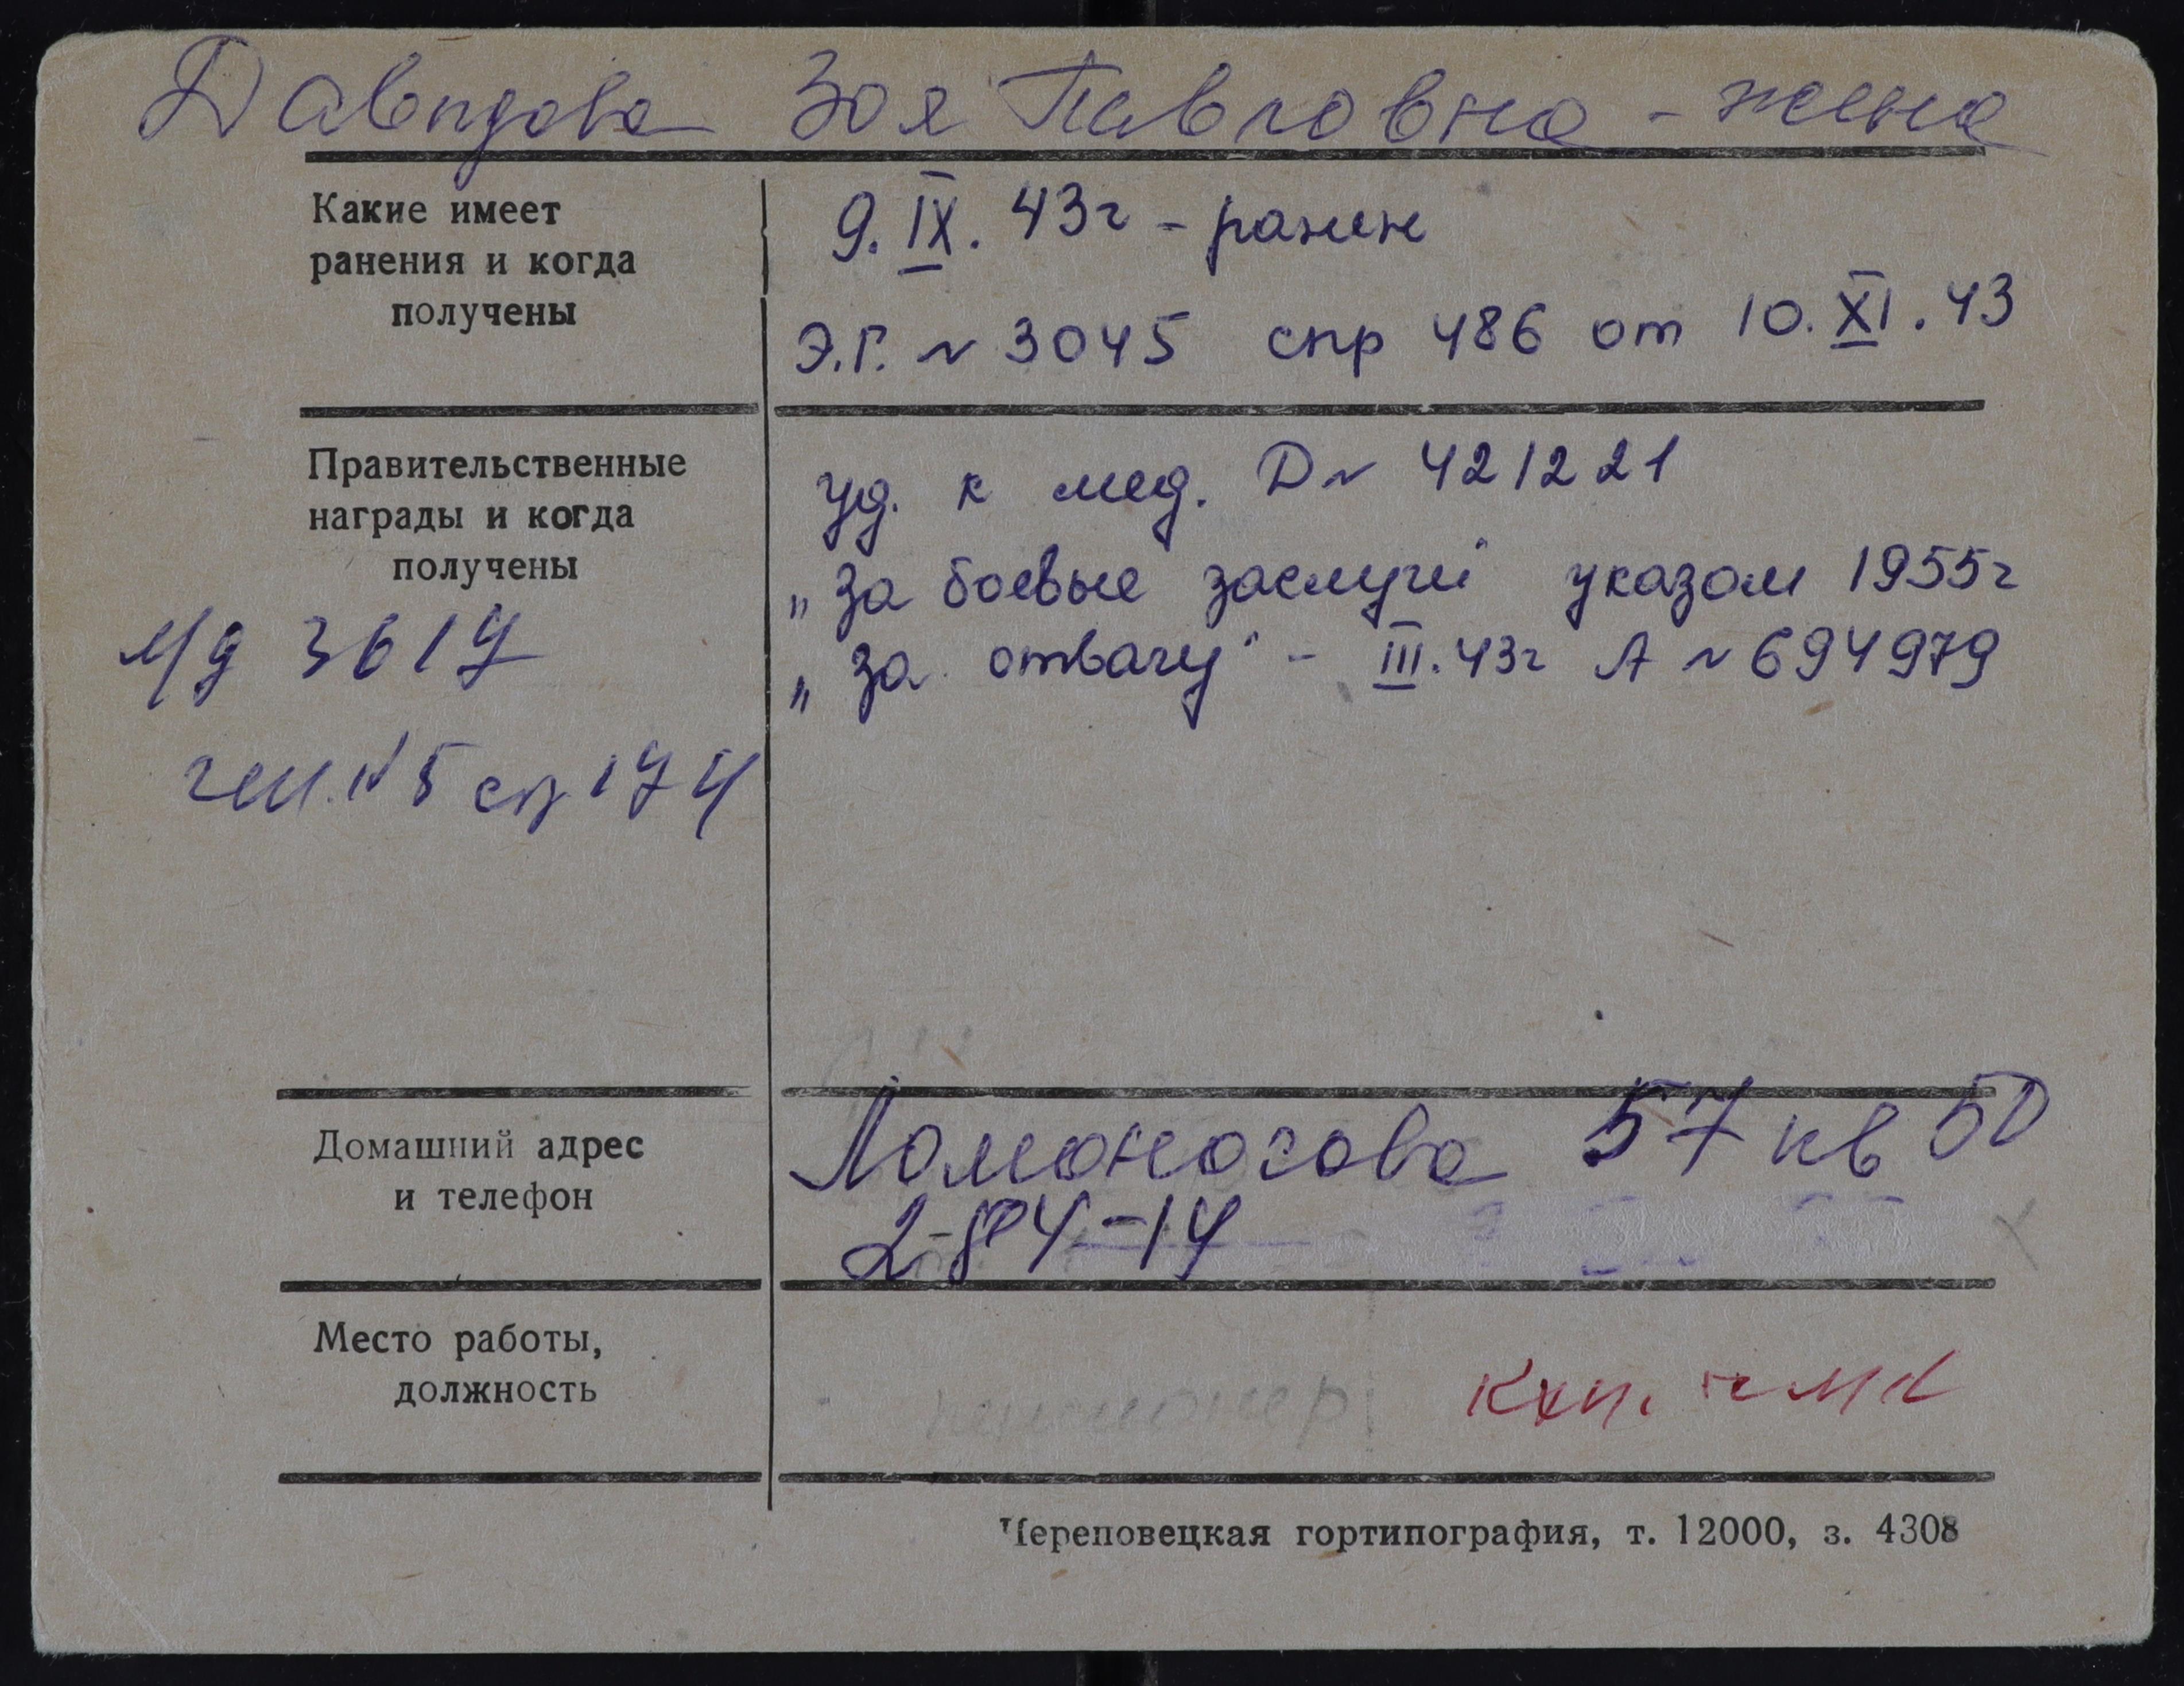 Давыдова Зоя Павловна - жена
Какие имеет
ранения и когда
получены
9.IX.43г - ранен
Э.Г. N 3045 спр 486 от 10.XI.43
Правительственные
награды и когда
получены
уд. к мед. D N 421221
„за боевые заслуги" указом 1955г
„за отвагу" - III.43г А N 694979
м/д 3617
N 5 сп 174
Домашний адрес
и телефон
Ломоносова 57 кв 50
Место работы,
должность
пенсионер
Череповецкая гортипография, т. 12000, з. 4308